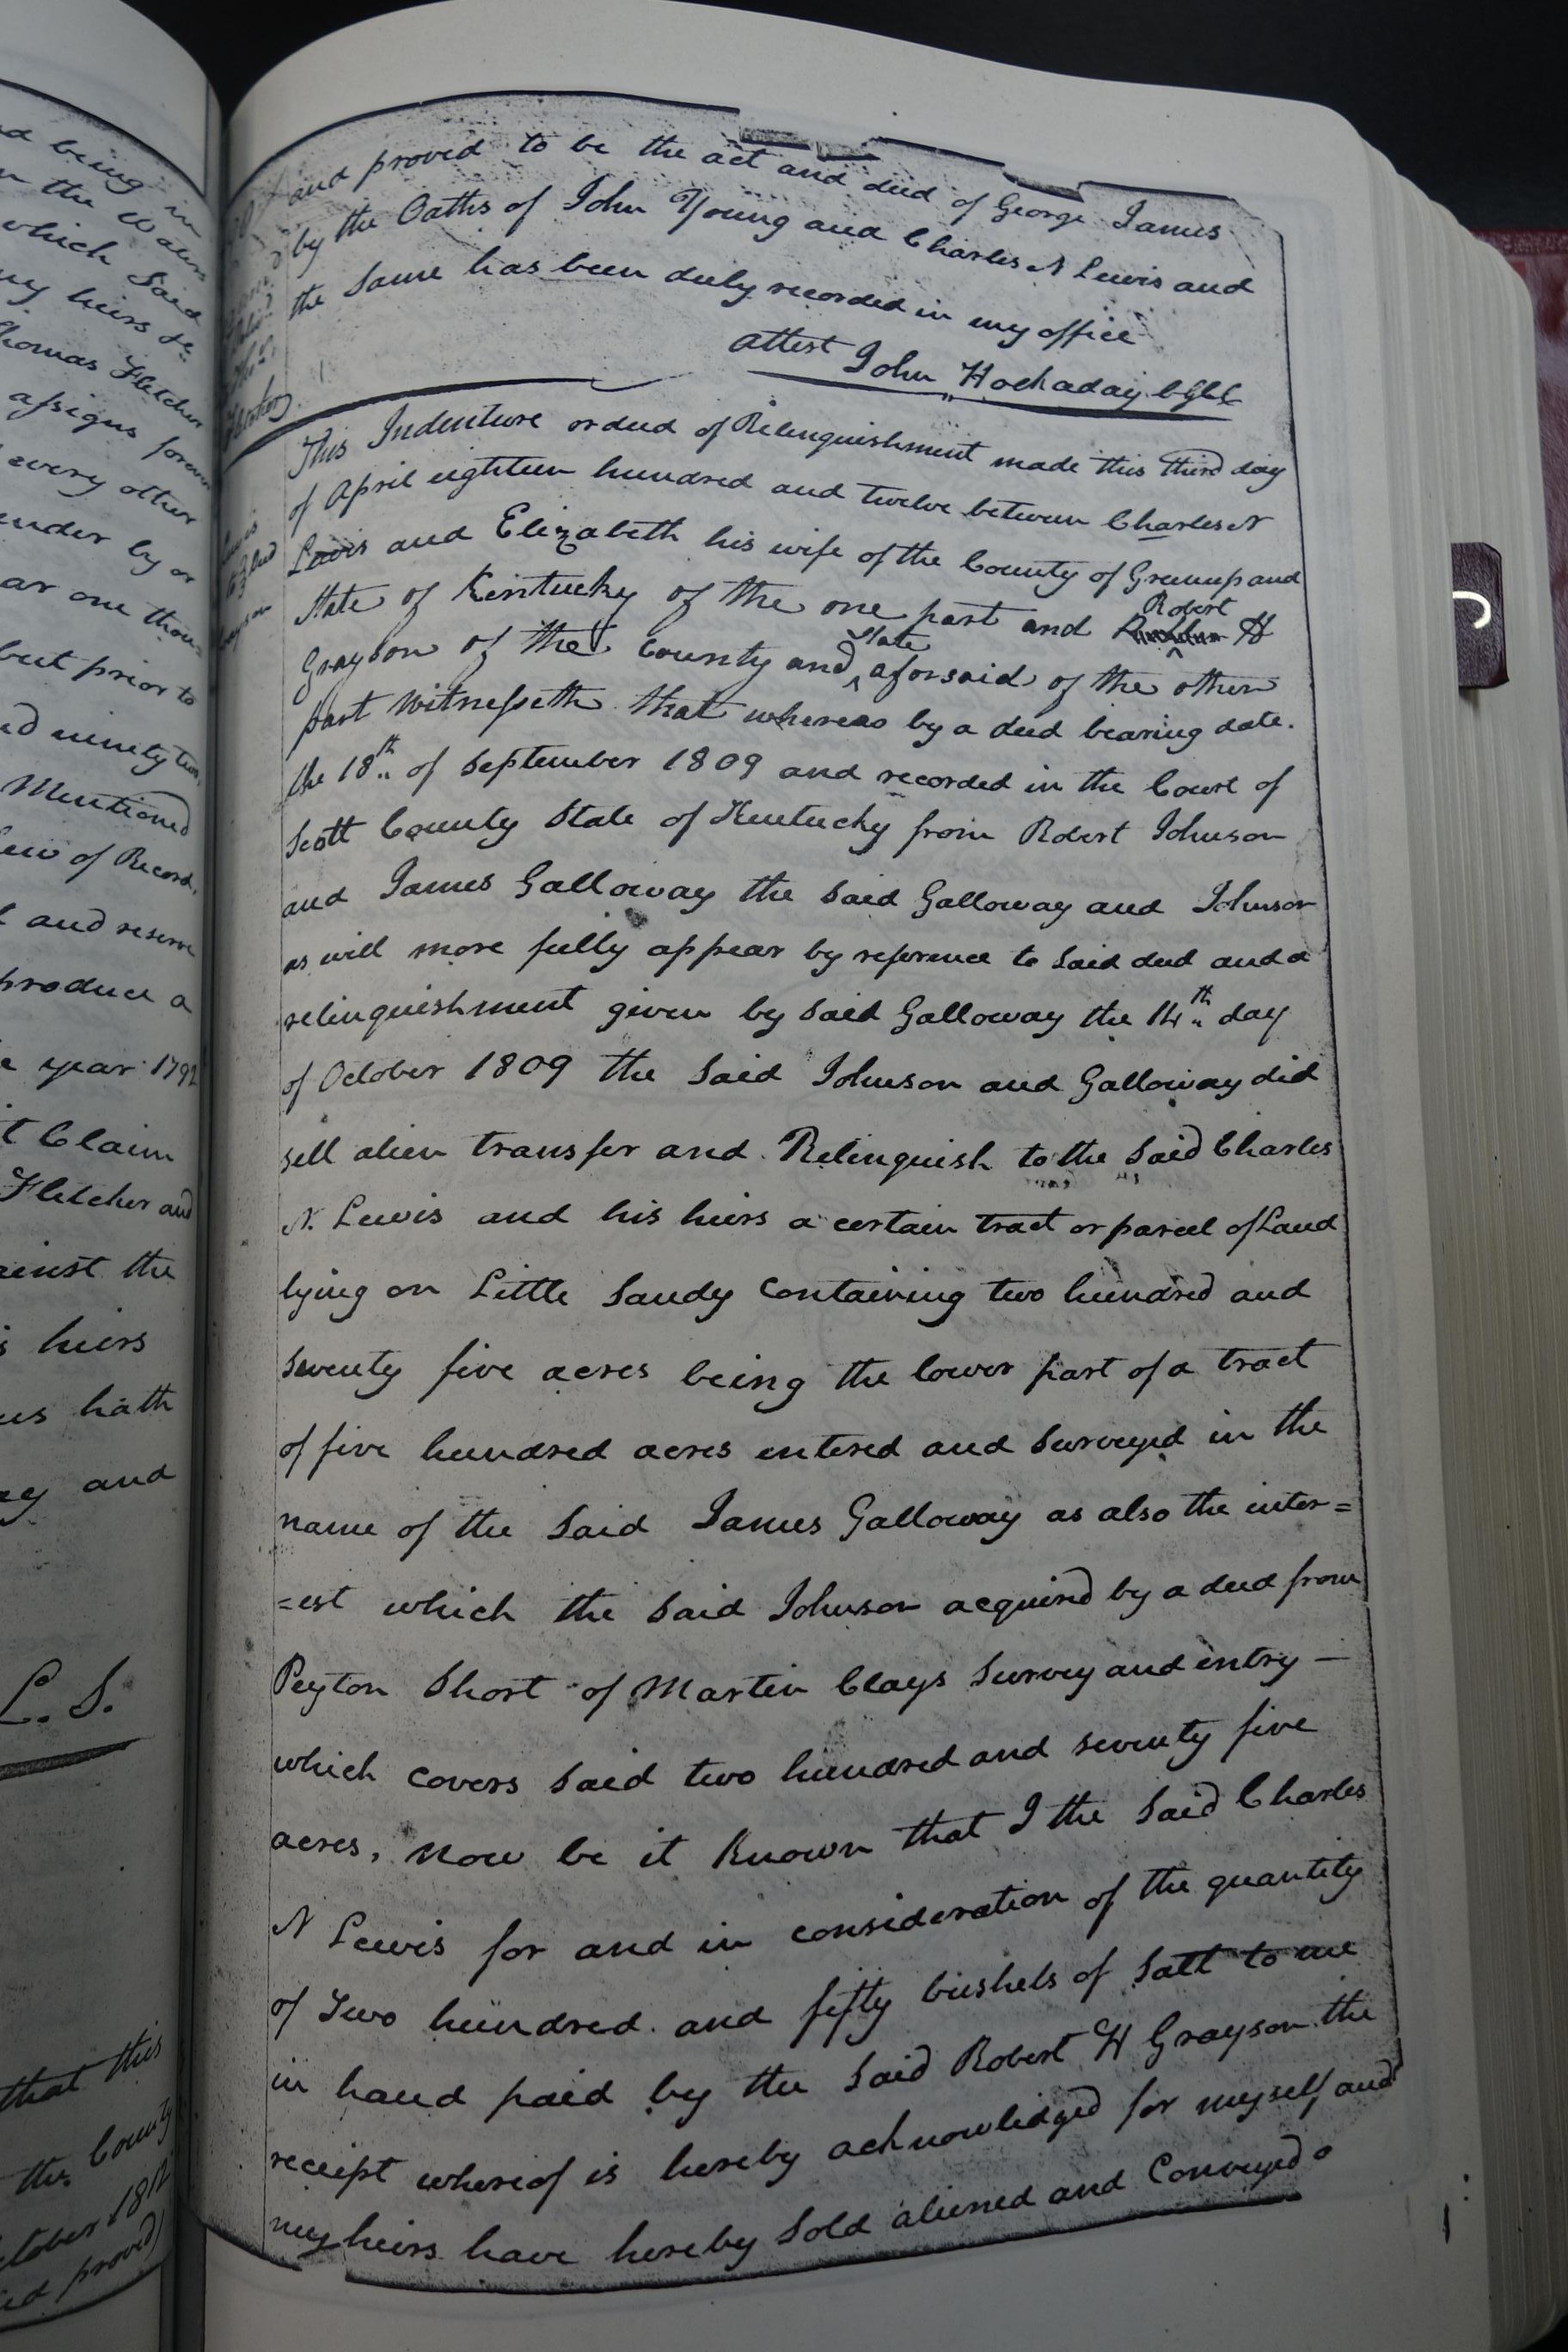 d being in
the Waters
which Said
my heirs &c
Thomas Fletcher
assigns forever
every other
under by or
or one thou-
but prior to
d ninety two
Mentioned
of Record,
and reserve
produce a
year 1792
t Claim
Fletcher and
ainst the
s heirs
us hath
y and
L. S.
that this
the County
October 1812
proved
and proved to be the act and deed of George James
by the Oaths of John Young and Charles N Lewis and
the same has been duly recorded in my office
attest John Hockaday
This Indenture or deed of Relinguishment made this third day
of April eighteen hundred and twelve between Charles N
Lewis and Elizabeth his wife of the County of Greenup and
State of Kentucky of the one part and Robert H
Grayson of the County and State aforsaid of the other
part Witnesseth that whereas by a deed bearing date.
the 18th of September 1809 and recorded in the Court of
Scott County State of Kentucky from Robert Johnson
and James Galloway the Said Galloway and Johnson
as will more fully appear by reference to Said deed and a
relinguishment given by Said Galloway the 14th day
of October 1809 the Said Johnson and Galloway did
sell alien transfer and Relinguish to the Said Charles
N. Lewis and his heirs a certain tract or parcel of Land
lying on Little Sandy Containing two hundred and
Seventy five acres being the lower part of a tract
of five hundred acres entered and Surveyed in the
name of the Said James Galloway as also the inter=
=est which the Said Johnson acquired by a deed from
Peyton Short of Martin Clays Survey and entry —
which covers Said two hundred and seventy five
acres, Now be it Known that I the Said Charles
N Lewis for and in consideration of the quantity
of Two hundred and fifty bushels of Salt to me
in hand paid by the Said Robert H Grayson the
receipt whereof is hereby acknowledged for myself and
my heirs have hereby Sold aliened and Conveyed